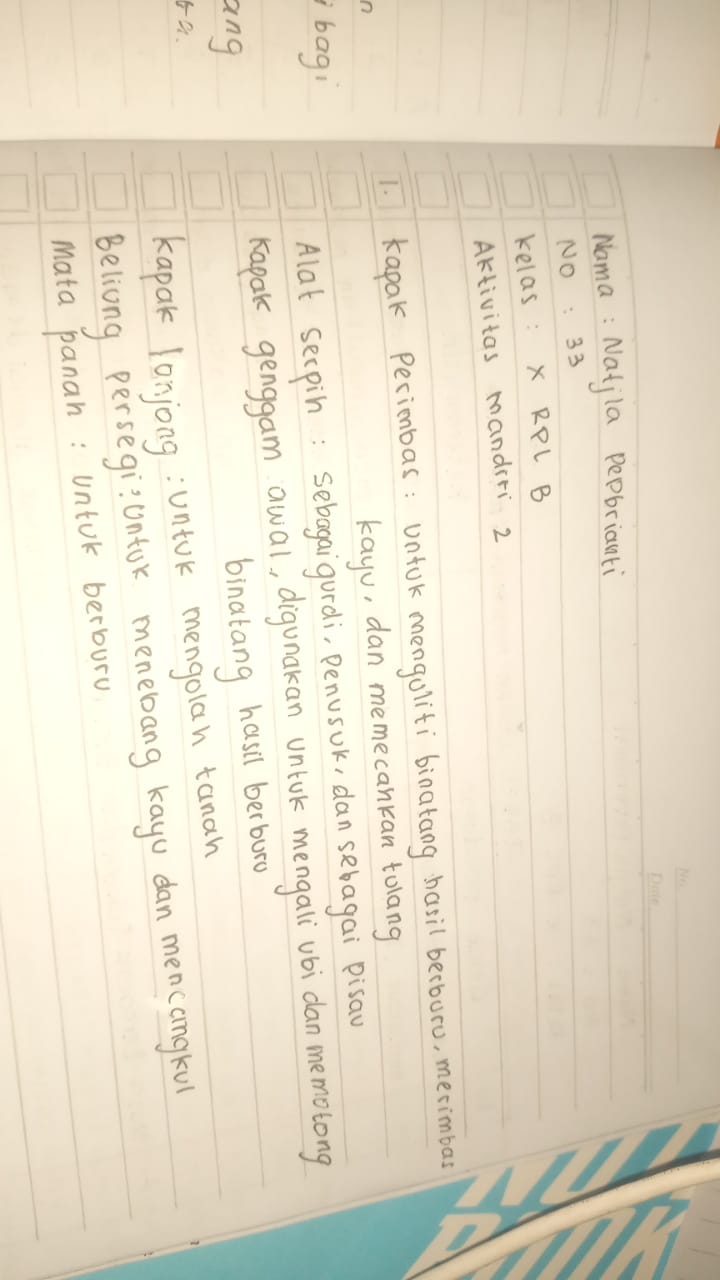 n
i bagi
ang
No
Date
Nama : Natjla Pepbrianti
No : 33
kelas : X RPL B
Aktivitas mandiri 2
1. Kapak Perimbas : untuk menguliti binatang hasil berburu, merimbas
kayu, dan memecahkan tulang
Alat serpih : sebagai gurdi, penusuk, dan sebagai pisau
Kapak genggam awal, digunakan untuk mengali ubi dan memotong
binatang hasil berburu
Kapak lonjong : untuk mengolah tanah
Beliung persegi : untuk menebang kayu dan mencangkul
Mata panah : untuk berburu